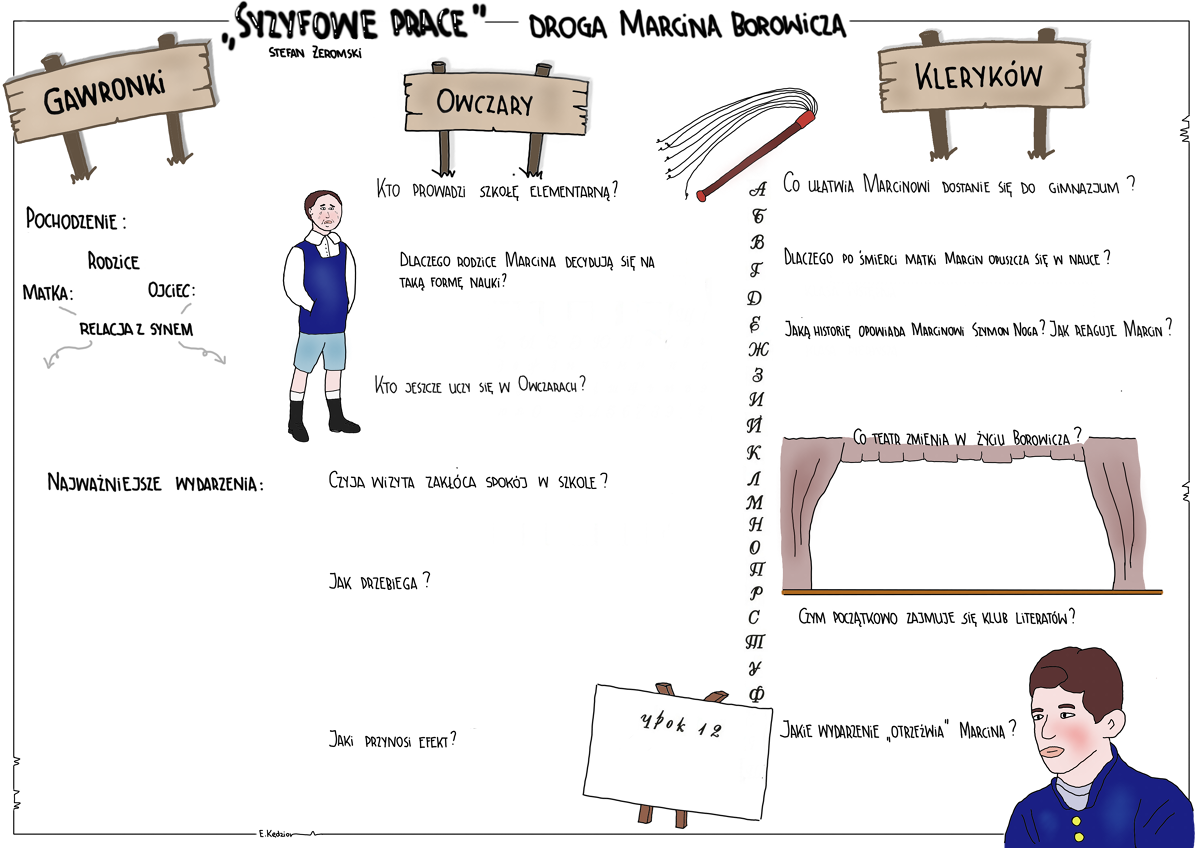 „SYZYFOWE PRACE" DROGA MARCINA BOROWICZA
STEFAN ŻEROMSKI
GAWRONKI
POCHODZENIE:
RODZICE
MATKA: OJCIEC:
RELACJA Z SYNEM
NAJWAŻNIEJSZE WYDARZENIA:
OWCZARY
KTO PROWADZI SZKOŁĘ ELEMENTARNĄ?
DLACZEGO RODZICE MARCINA DECYDUJĄ SIĘ NA
TAKĄ FORMĘ NAUKI?
KTO JESZCZE UCZY SIĘ W OWCZARACH?
CZYJA WIZYTA ZAKŁÓCA SPOKÓJ W SZKOLE?
JAK PRZEBIEGA?
JAKI PRZYNOSI EFEKT?
А
Б
В
Г
Д
Е
Ж
З
И
Й
К
Л
М
Н
О
П
Р
С
Т
У
Ф
урок 12
KLERYKÓW
CO UŁATWIA MARCINOWI DOSTANIE SIĘ DO GIMNAZJUM?
DLACZEGO PO ŚMIERCI MATKI MARCIN OPUSZCZA SIĘ W NAUCE?
JAKĄ HISTORIĘ OPOWIADA MARCINOWI SZYMON NOGA? JAK REAGUJE MARCIN?
CO TEATR ZMIENIA W ŻYCIU BOROWICZA?
CZYM POCZĄTKOWO ZAJMUJE SIĘ KLUB LITERATÓW?
JAKIE WYDARZENIE „OTRZEŹWIA" MARCINA?
E.Kędzior